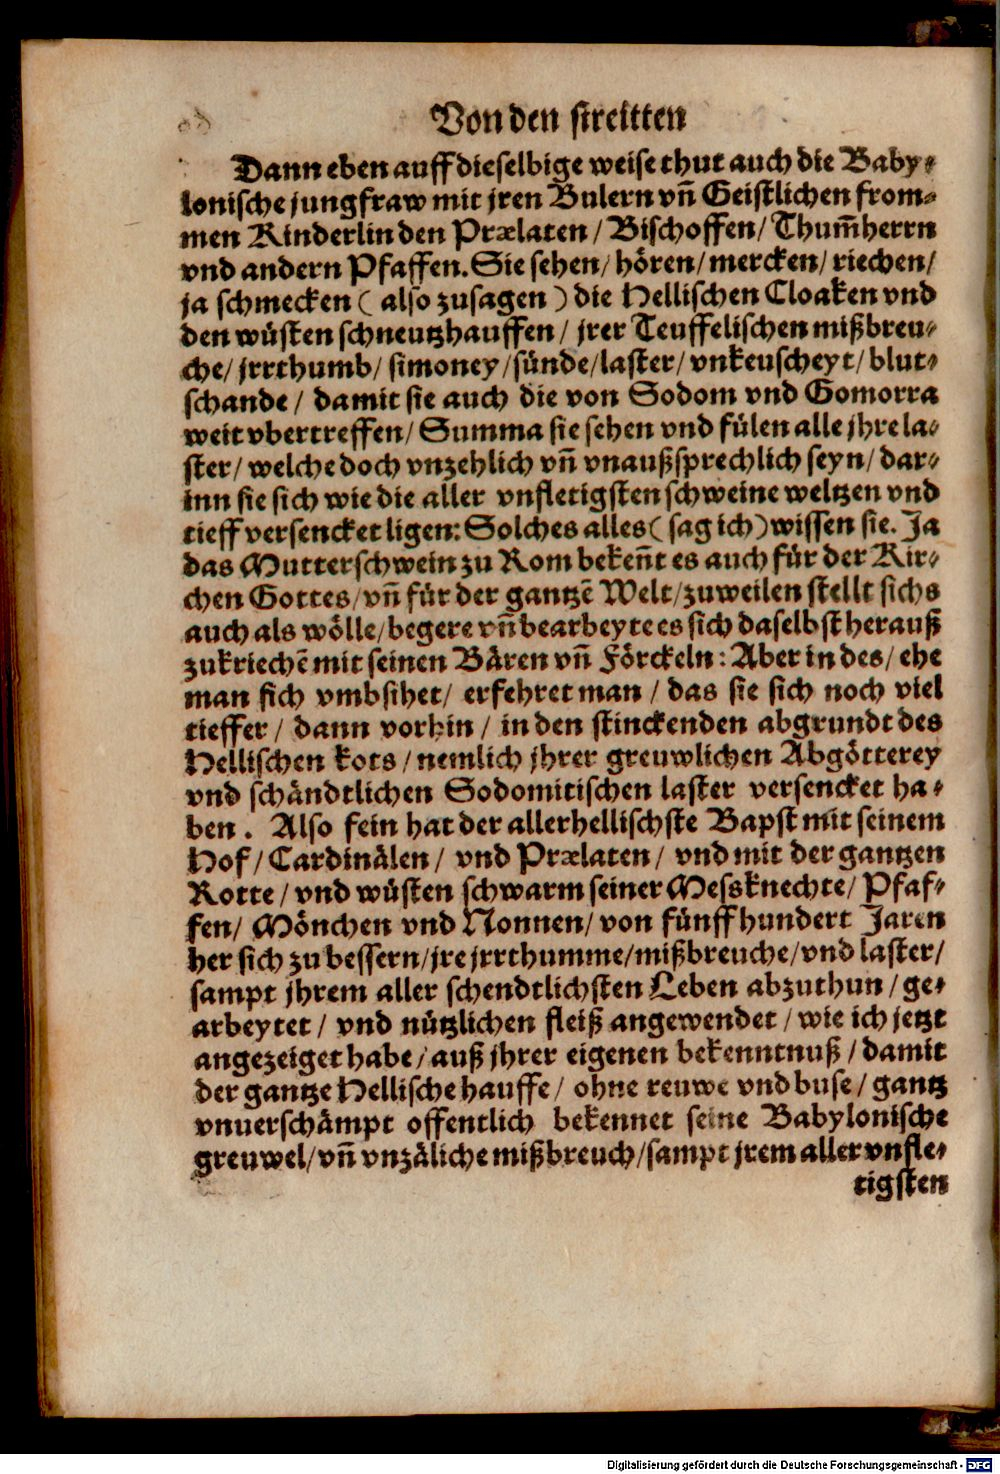 Von den streitten
Dann eben auff dieselbige weise thut auch die Baby⸗
lonische jungfraw mit jren Bulern vñ Geistlichen from⸗
men Kinderlin den Prælaten / Bischoffen / Thum̃herrn
vnd andern Pfaffen. Sie sehen / hören / mercken / riechen /
ja schmecken ( also zusagen ) die Hellischen Cloaken vnd
den wüsten schneutzhauffen / jrer Teuffelischen mißbreu⸗
che / jrrthumb / simoney / sünde / laster / vnkeuscheyt / blut⸗
schande / damit sie auch die von Sodom vnd Gomorra
weit vbertreffen / Summa sie sehen vnd fülen alle jhre la⸗
ster / welche doch vnzehlich vñ vnaußsprechlich seyn / dar⸗
inn sie sich wie die aller vnfletigsten schweine weltzen vnd
tieff versencket ligen: Solches alles ( sag ich ) wissen sie. Ja
das Mutterschwein zu Rom bekeñt es auch für der Kir⸗
chen Gottes / vñ für der gantzẽ Welt / zuweilen stellt sichs
auch als wölle / begere vñ bearbeyte es sich daselbst herauß
zukriechẽ mit seinen Bären vñ Förckeln: Aber in des / ehe
man sich vmbsihet / erfehret man / das sie sich noch viel
tieffer / dann vorhin / in den stinckenden abgrundt des
Hellischen kots / nemlich jhrer greuwlichen Abgötterey
vnd schändtlichen Sodomitischen laster versencket ha⸗
ben . Also fein hat der allerhellischste Bapst mit seinem
Hof / Cardinälen / vnd Prælaten / vnd mit der gantzen
Rotte / vnd wüsten schwarm seiner Messknechte / Pfaf⸗
fen / Mönchen vnd Nonnen / von fünffhundert Jaren
her sich zu bessern / jre jrrthumme / mißbreuche / vnd laster /
sampt jhrem aller schendtlichsten Leben abzuthun / ge⸗
arbeytet / vnd nützlichen fleiß angewendet / wie ich jetzt
angezeiget habe / auß jhrer eigenen bekenntnuß / damit
der gantze Hellische hauffe / ohne reuwe vnd buse / gantz
vnuerschämpt offentlich bekennet seine Babylonische
greuwel / vñ vnzäliche mißbreuch / sampt jrem aller vnfle⸗
tigsten
Digitalisierung gefördert durch die Deutsche Forschungsgemeinschaft - DFG